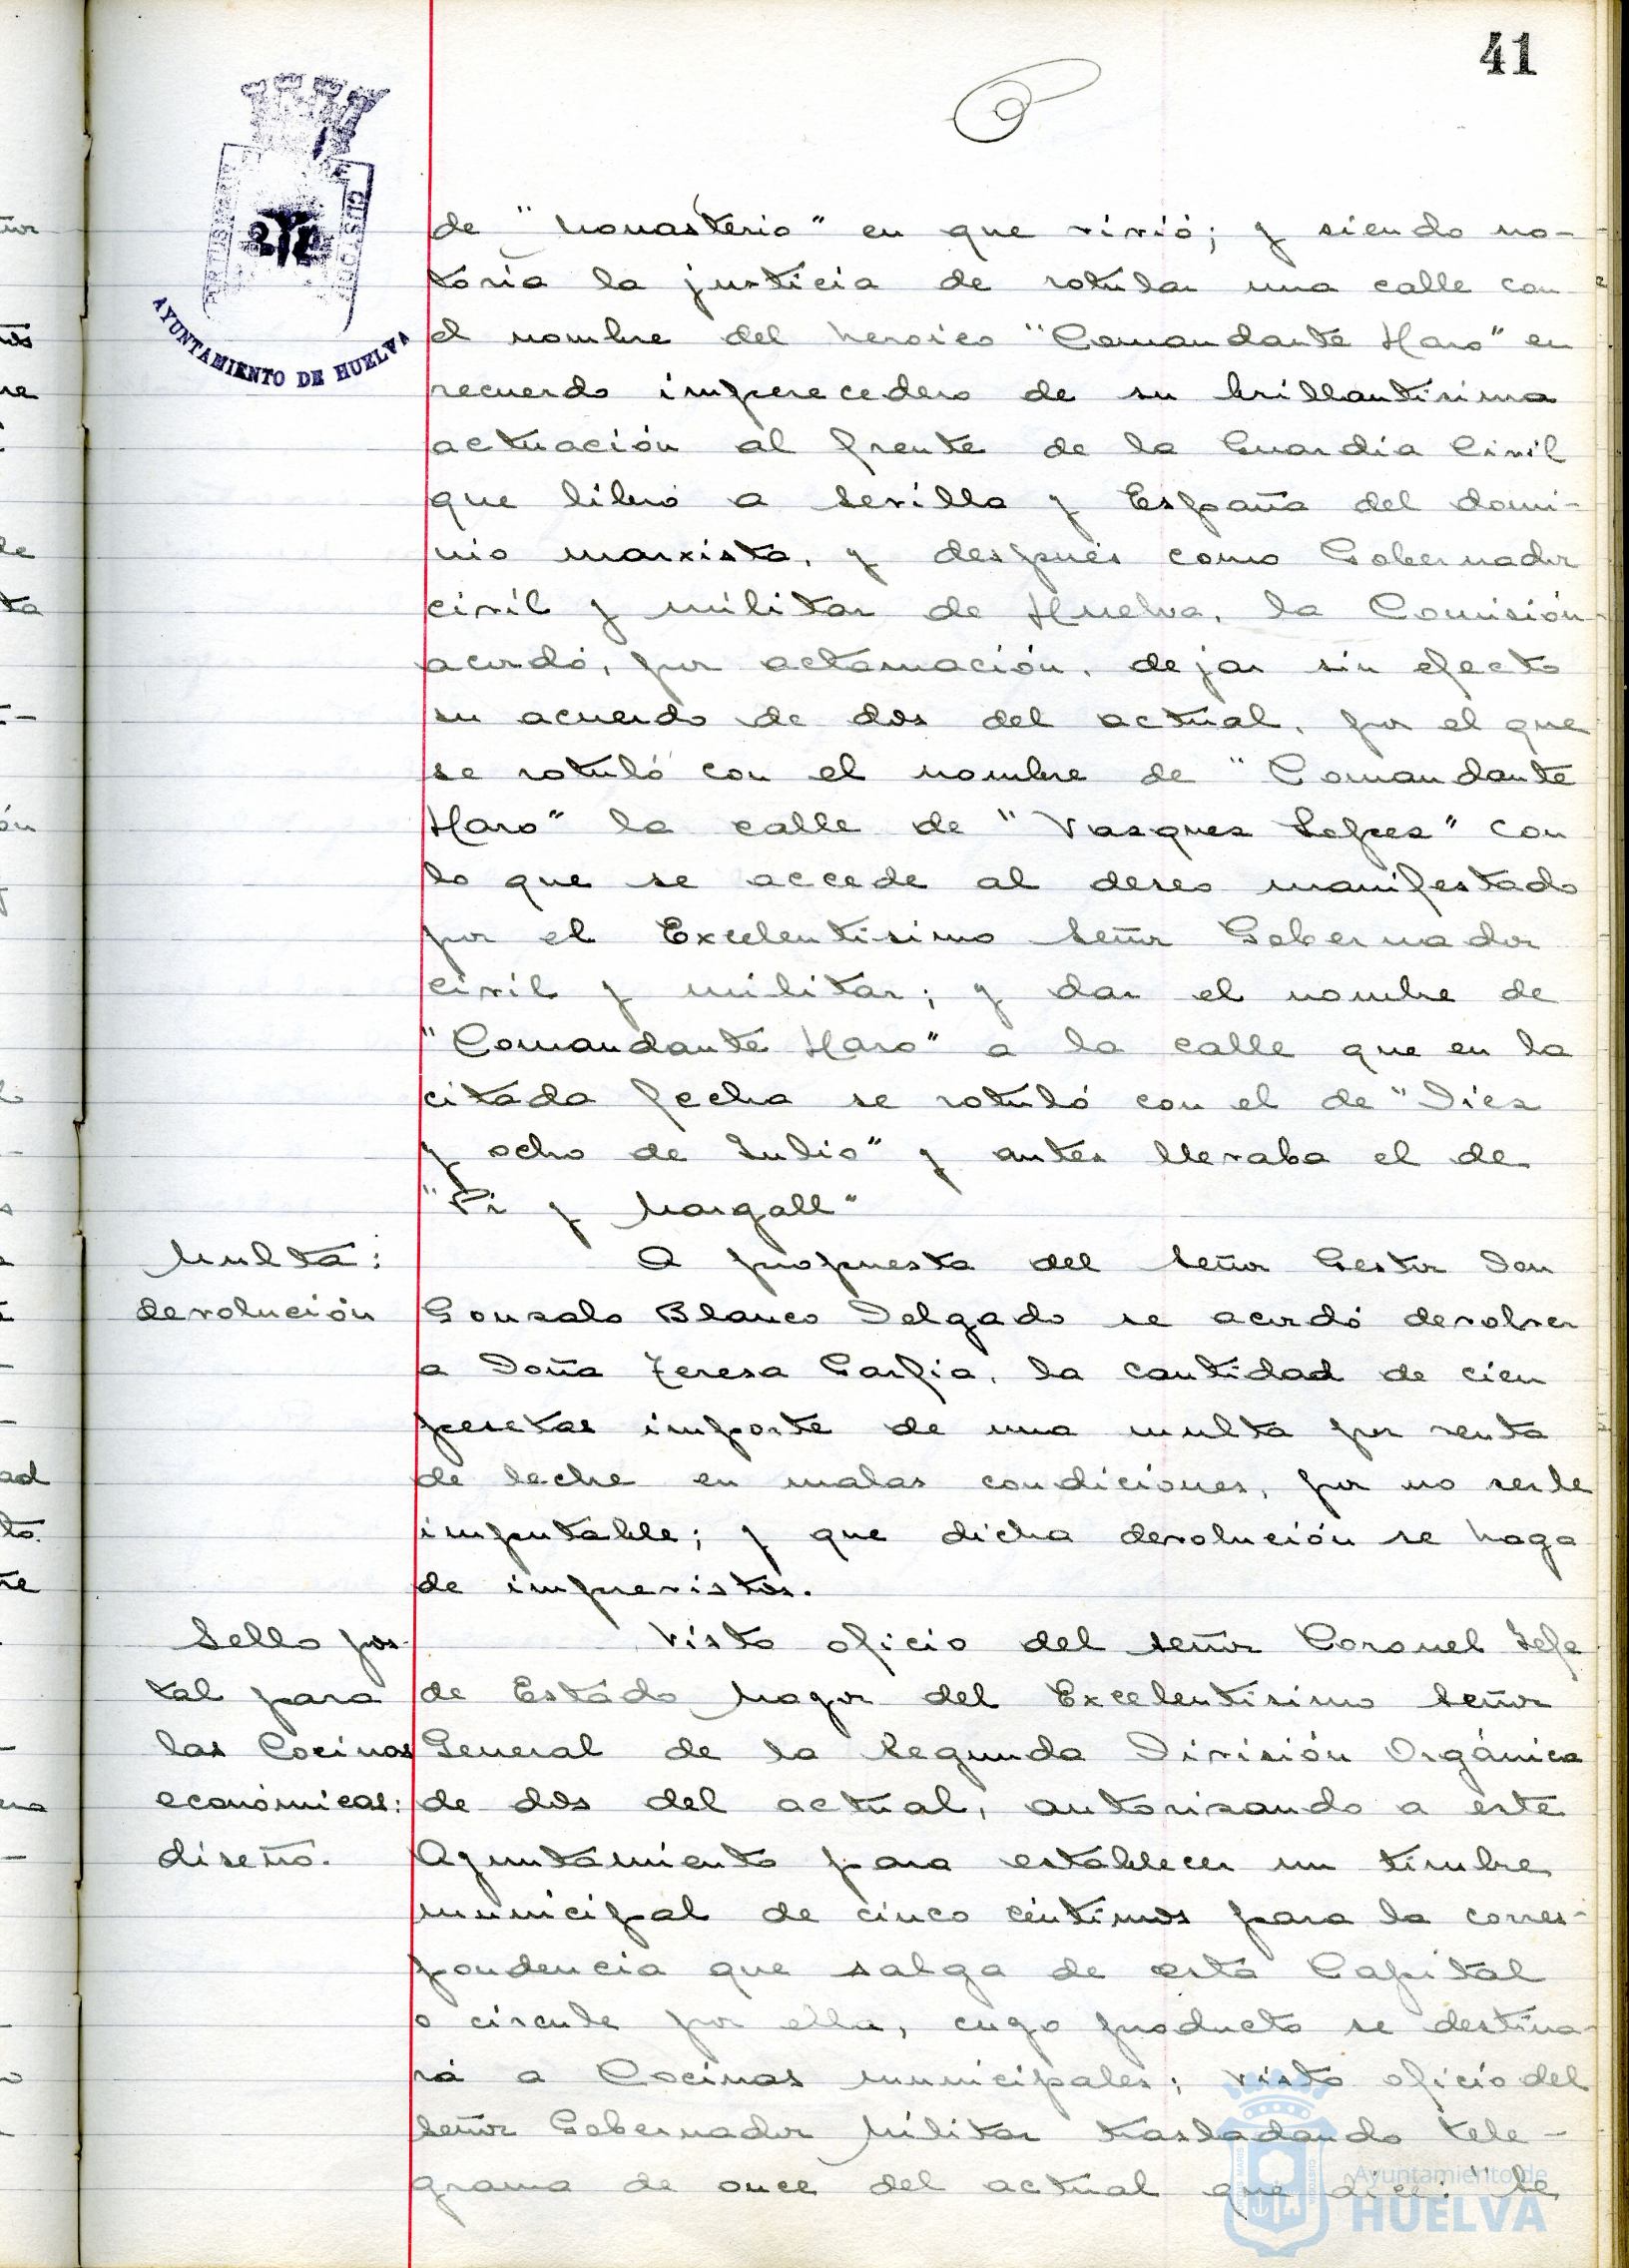 41
AYUNTAMIENTO DE HUELVA
de "Monasterio" en que vivió; y siendo no-
toria la justicia de rotular una calle con
el nombre del heroico "Comandante Haro" en
recuerdo imperecedero de su brillantísima
actuación al frente de la Guardia Civil
que libró a Sevilla y España del domi-
nio marxista, y después como Gobernador
civil y militar de Huelva, la Comisión
acordó, por aclamación, dejar sin efecto
su acuerdo de dos del actual, por el que
se rotuló con el nombre de "Comandante
Haro" la calle de "Vasques Lopez" con
lo que se accede al deseo manifestado
por el Excelentísimo Señor Gobernador
civil y militar; y dar el nombre de
"Comandante Haro" a la calle que en la
citada fecha se rotuló con el de "Diez
y ocho de Julio" y antes llevaba el de
"Pi y Margall"
Multa:
devolución
A propuesta del Señor Gestor Don
Gonzalo Blanco Delgado se acordó devolver
a Doña Teresa Garfia, la cantidad de cien
pesetas importe de una multa por venta
de leche en malas condiciones, por no serle
imputable; y que dicha devolución se haga
de imprevistos.
Sello pos-
tal para
las Cocinas
económicas:
diseño.
Visto oficio del Señor Coronel Jefe
de Estado Mayor del Excelentísimo Señor
General de la Segunda División Orgánica
de dos del actual, autorizando a este
Ayuntamiento para establecer un timbre
municipal de cinco céntimos para la corres-
pondencia que salga de esta Capital
o circule por ella, cuyo producto se destina-
rá a Cocinas municipales; visto oficio del
Señor Gobernador Militar trasladando tele-
grama de once del actual que dice: "Se
Ayuntamiento de
HUELVA